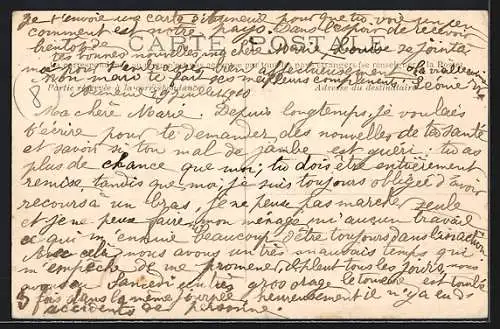 Je t'envoie une carte d' pour que tu voie un peu
comment est notre pays. Dans l'espoir de recevoir
bientôt de
tes bonnes nouvelles ma chère Marie Louise se joint à
CARTE POSTALE
moi pour t'embrasser bien affectueusement
mon mari te fait ses meilleurs compliments Léonie
Partie réservée à la correspondance
Adresse du destinataire
8
juillet 1910
Ma chère Marie. Depuis longtemps, je voulais
t'écrire pour te demander des nouvelles de ta santé
et savoir si ton mal de jambe est guéri; tu as
plus de chance que moi; tu dois être entièrement
remise, tandis que moi, je suis toujours obligée d'avoir
recours à un bras, je ne peux pas marcher seule
et je ne peux faire mon ménage ni aucun travail
ce qui m'ennuie beaucoup d'être toujours dans l'inaction.
Avec cela nous avons un très mauvais temps qui
m'empêche de me promener, il pleut tous les jours, nous
avons eu Samedi un très gros orage le tonnerre est tombé
3 fois dans la même, heureusement il n'y a eu d'
accidents de personne.